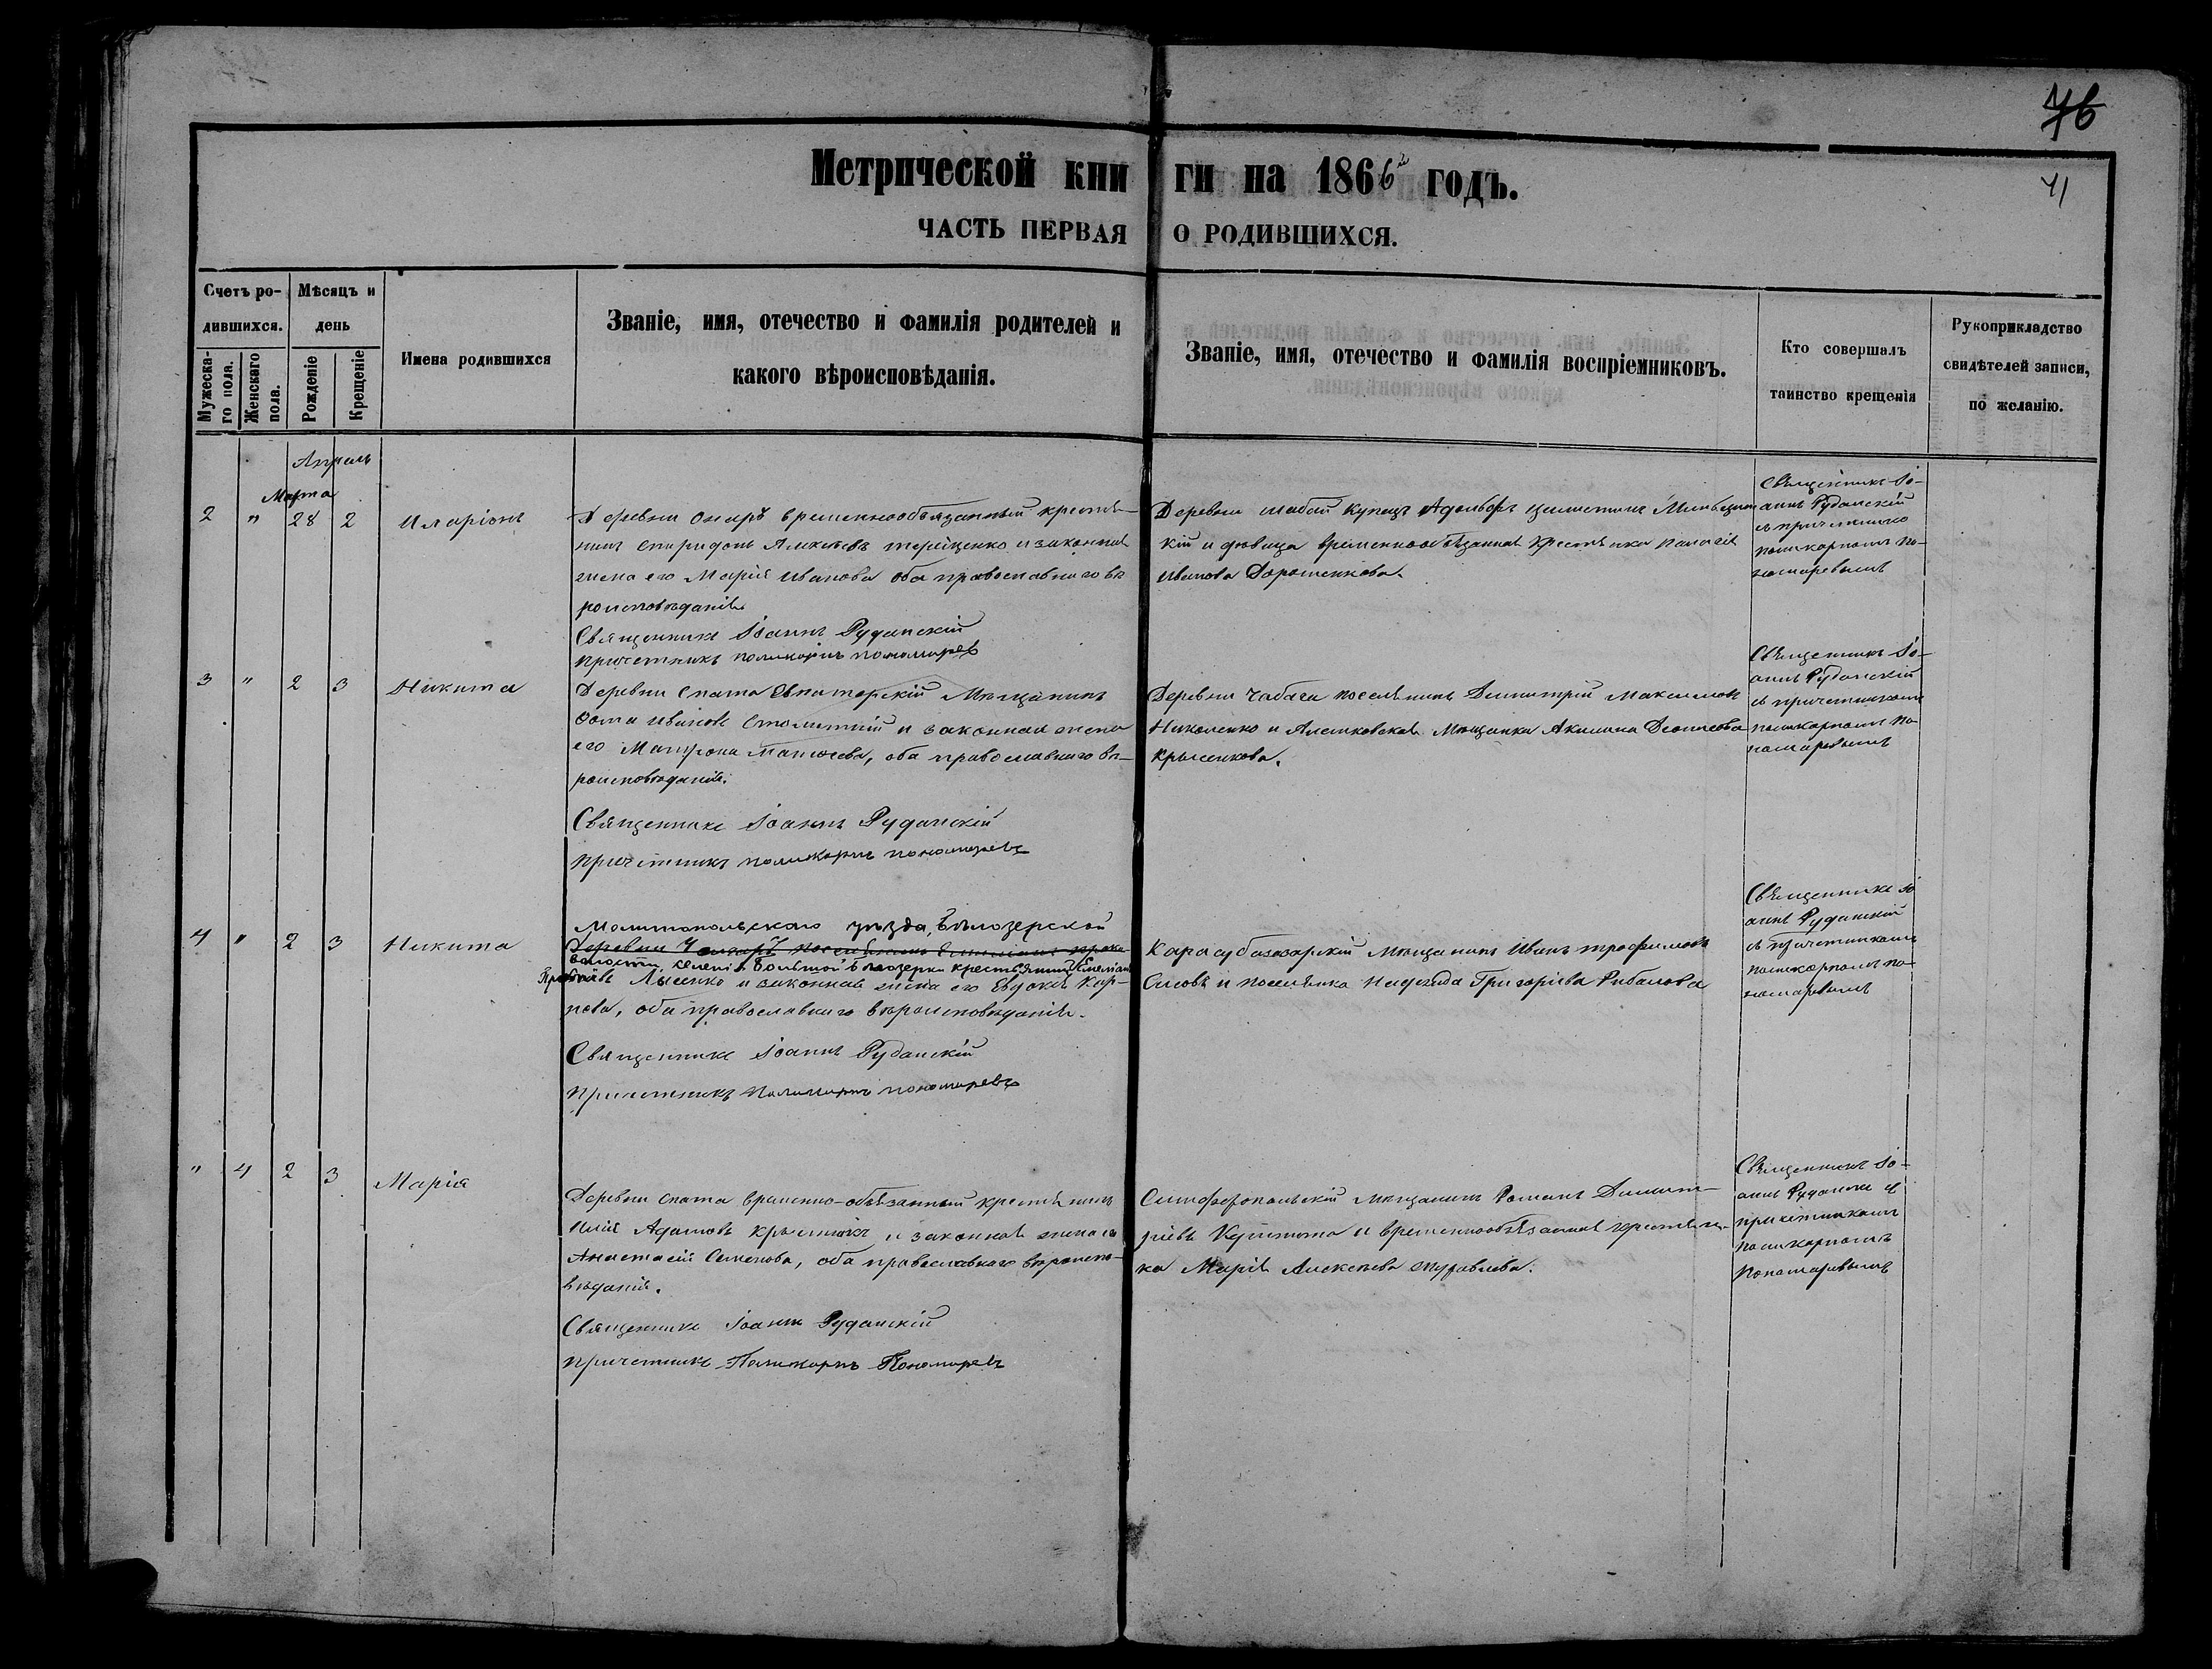 76
71
Метрической книги на 1866й годъ.
ЧАСТЬ ПЕРВАЯ О РОДИВШИХСЯ.
Счетъ ро-
дившихся.
Мужеска-
го пола.
Женскаго
пола.
Мѣсяцъ и
день
Рожденіе
Крещеніе
Имена родившихся
Званіе, имя, отечество и фамилія родителей и
какого вѣроисповѣданія.
Званіе, имя, отечество и фамилія воспріемниковъ.
Кто совершалъ
таинство крещенія
Рукоприкладство
свидѣтелей записи,
по желанію.
Апрель
Марта
2 " 28 2 Иларіонъ
Деревни временнообязанный кресть-
нинъ Спиридонъ Алексѣевъ и законная
жена его Марія Иванова оба православнаго вѣ
роисповѣданія
Священникъ Іоаннъ Руданскій
Причетникъ поликарпъ пономаревъ
Деревни купецъ Адольфъ
кій и дѣвица временнообязанная крестьянка
Иванова Дорошенкова.
Священникъ Іо-
аннъ Руданскій
съ причетникомъ
поликарпомъ по-
номаревымъ
3 " 2 3 Никита
Деревни Спата Евпаторскій Мѣщанинъ
Фома Ивановъ и законная жена
его Матрона Матвѣева, оба православнаго вѣ-
роисповѣданія.
Священникъ Іоаннъ Руданскій
причетникъ поликарпъ пономаревъ
Деревни поселянинъ Димитрій Максимовъ
Николенко и Алешковская Мѣщанка Акилина
Крысенкова.
Священникъ Іо-
аннъ Руданскій
съ причетникомъ
поликарпомъ по-
номаревымъ
4 " 2 3 Никита
Мелитопольскаго уѣзда, Бѣлозерской
Деревни поселянинъ Емиліанъ
волости, селенія Большой Бѣлозерки крестьянинъ Емеліанъ
Лысенко и законная жена его Евдокія Кар-
пова, оба православнаго вѣроисповѣданія.
Священникъ Іоаннъ Руданскій
Причетникъ Поликарпъ пономаревъ
Карасубазарскій мѣщанинъ Иванъ трофимовъ
и поселянка Надежда Григорьева Рибалова
Священникъ Іо
аннъ Руданскій
съ причетникомъ
поликарпомъ по-
номаревымъ
" 4 2 3 Марія
Деревни Спата временно-обязанный крестьянинъ
Илія Адамовъ и законная жена его
Анастасія Семенова, оба православнаго вѣроиспо-
вѣданія.
Священникъ Іоаннъ Руданскій
причетникъ Поликарпъ Пономаревъ
Симферопольскій мѣщанинъ Романъ Димит-
ріевъ и временнообязанная крестьян-
ка Марія Алексѣева Журавлева.
Священникъ Іо-
аннъ Руданскій съ
причетникомъ
поликарпомъ
Пономаревымъ